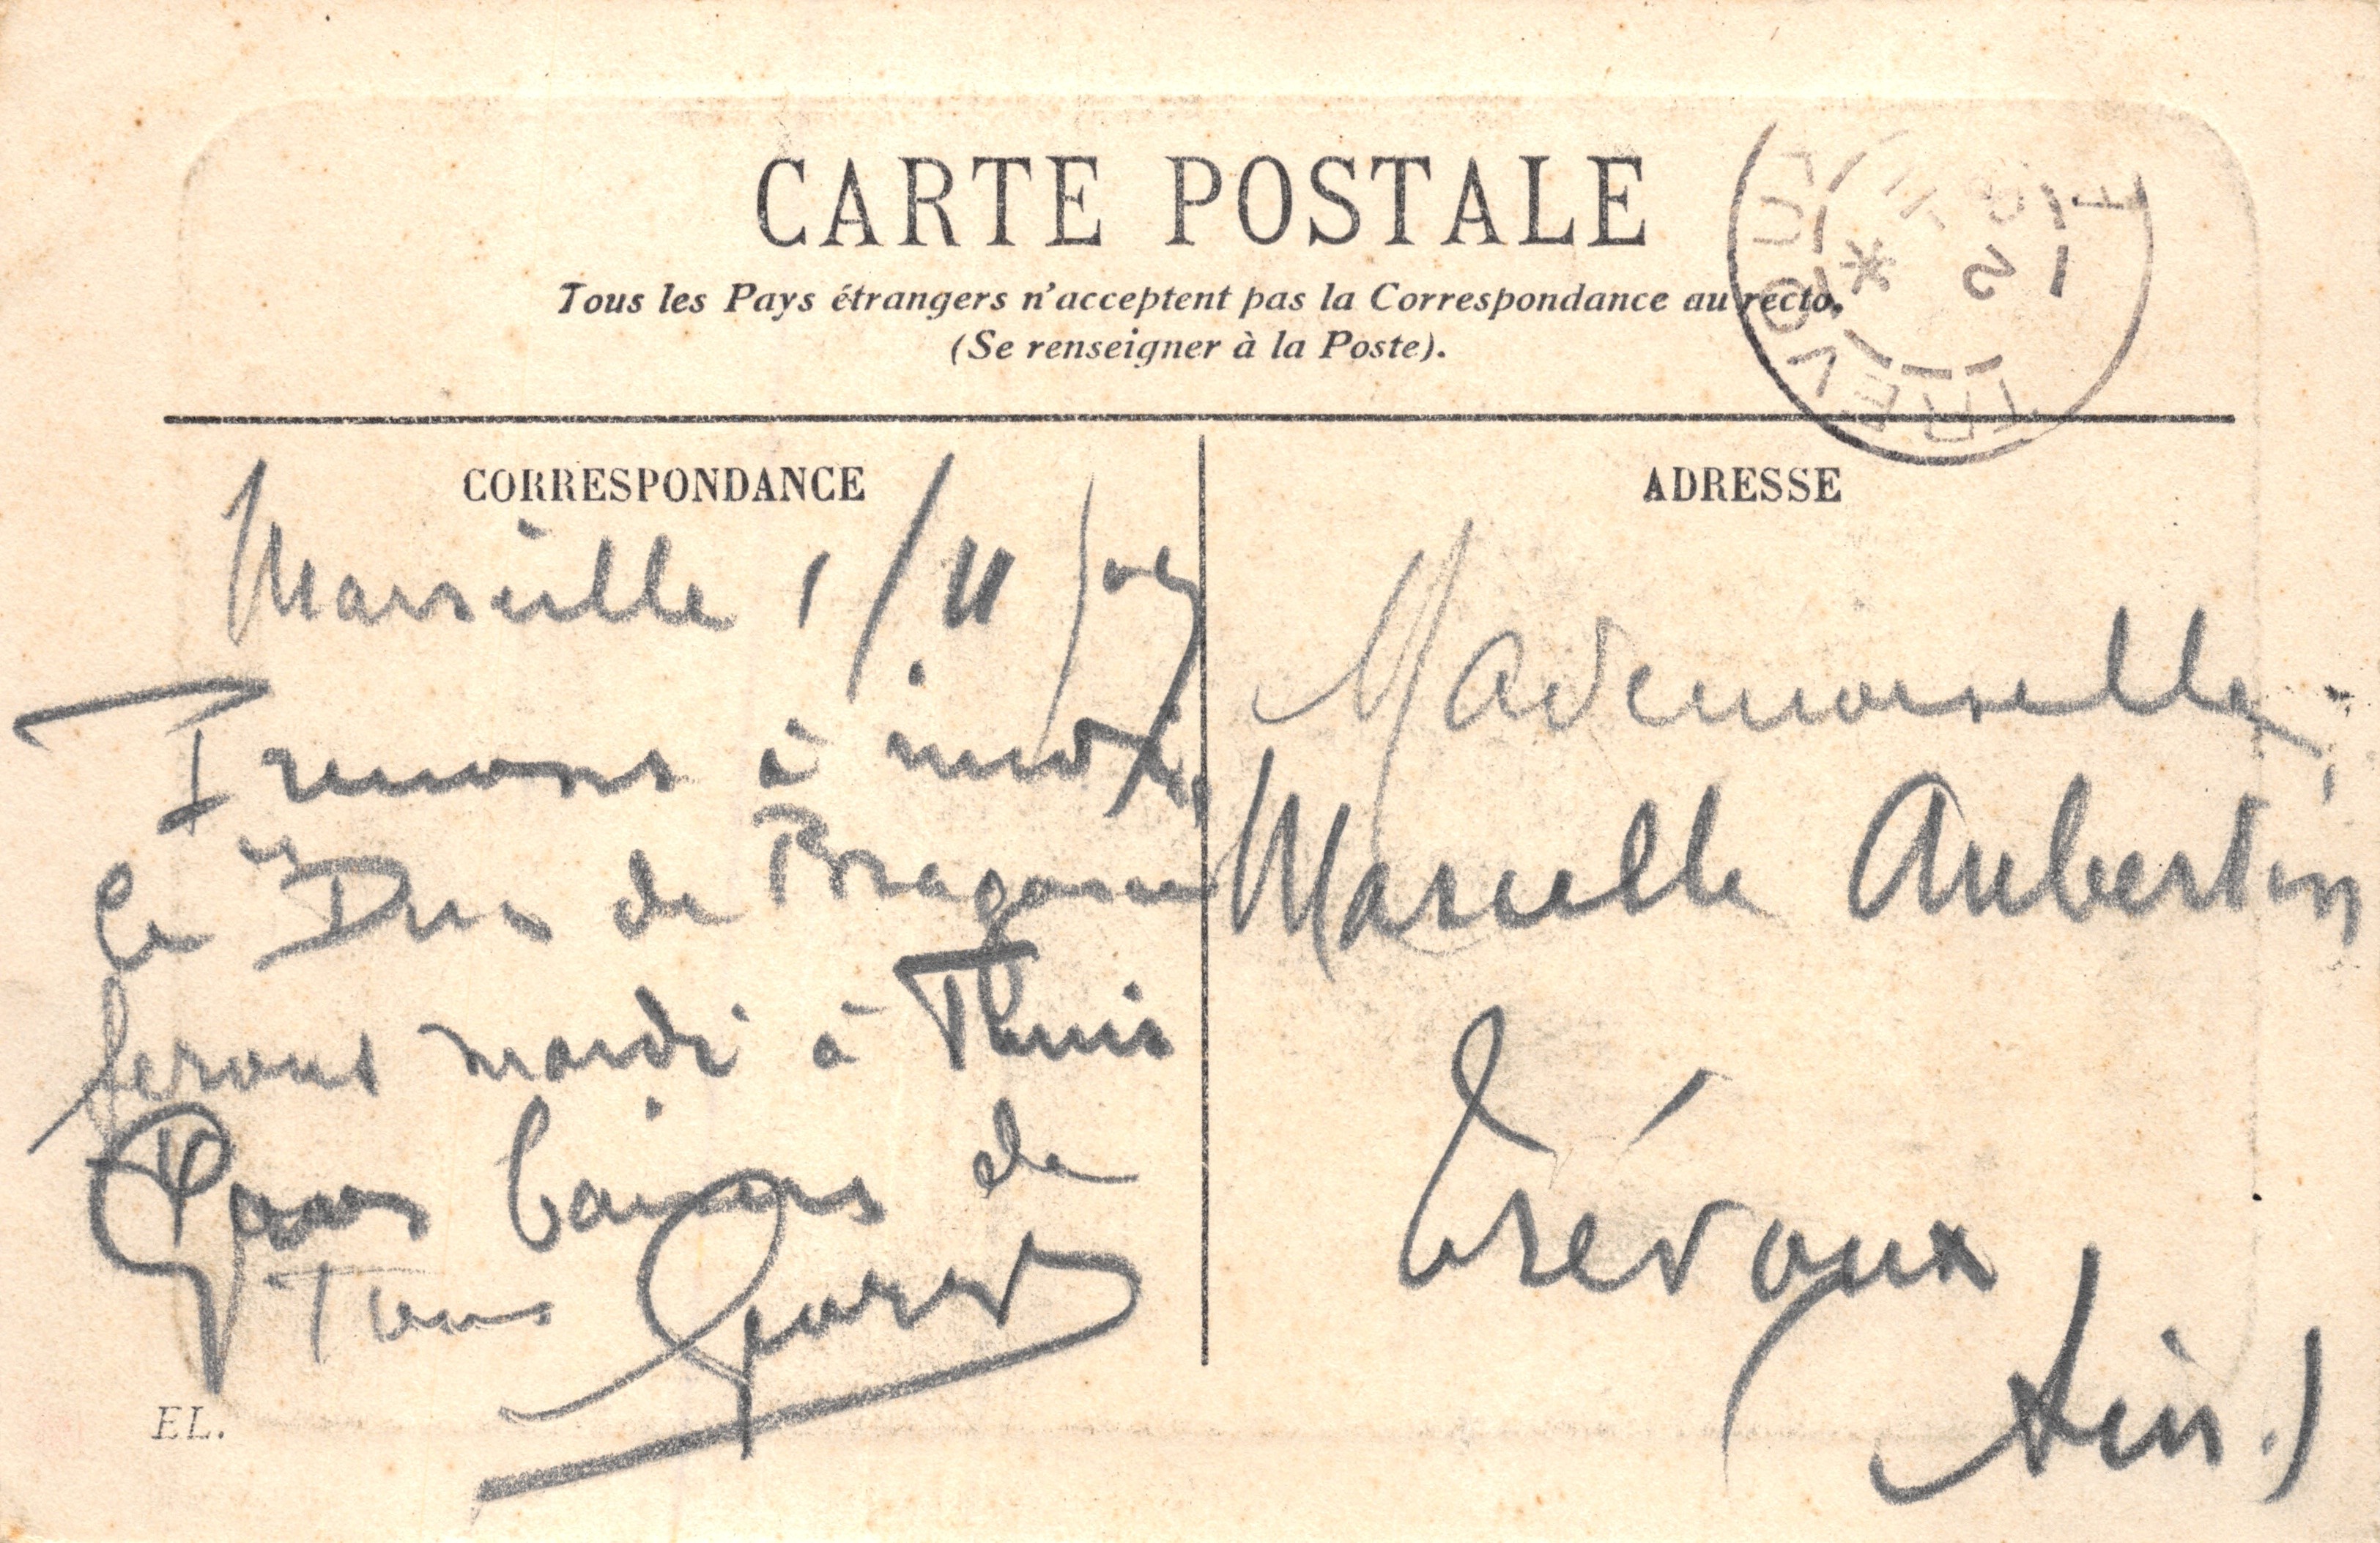 CARTE POSTALE
Tous les Pays étrangers n'acceptent pas la Correspondance au recto.
(Se renseigner à la Poste).
TREVOUX
CORRESPONDANCE
ADRESSE
Marseille 1/11/09
à midi
le Duc de Bragance
serons mardi à Tunis
Gros baisers de
Tous
Mademoiselle
Marcelle Aubertin
Trévoux
(Ain.)
EL.